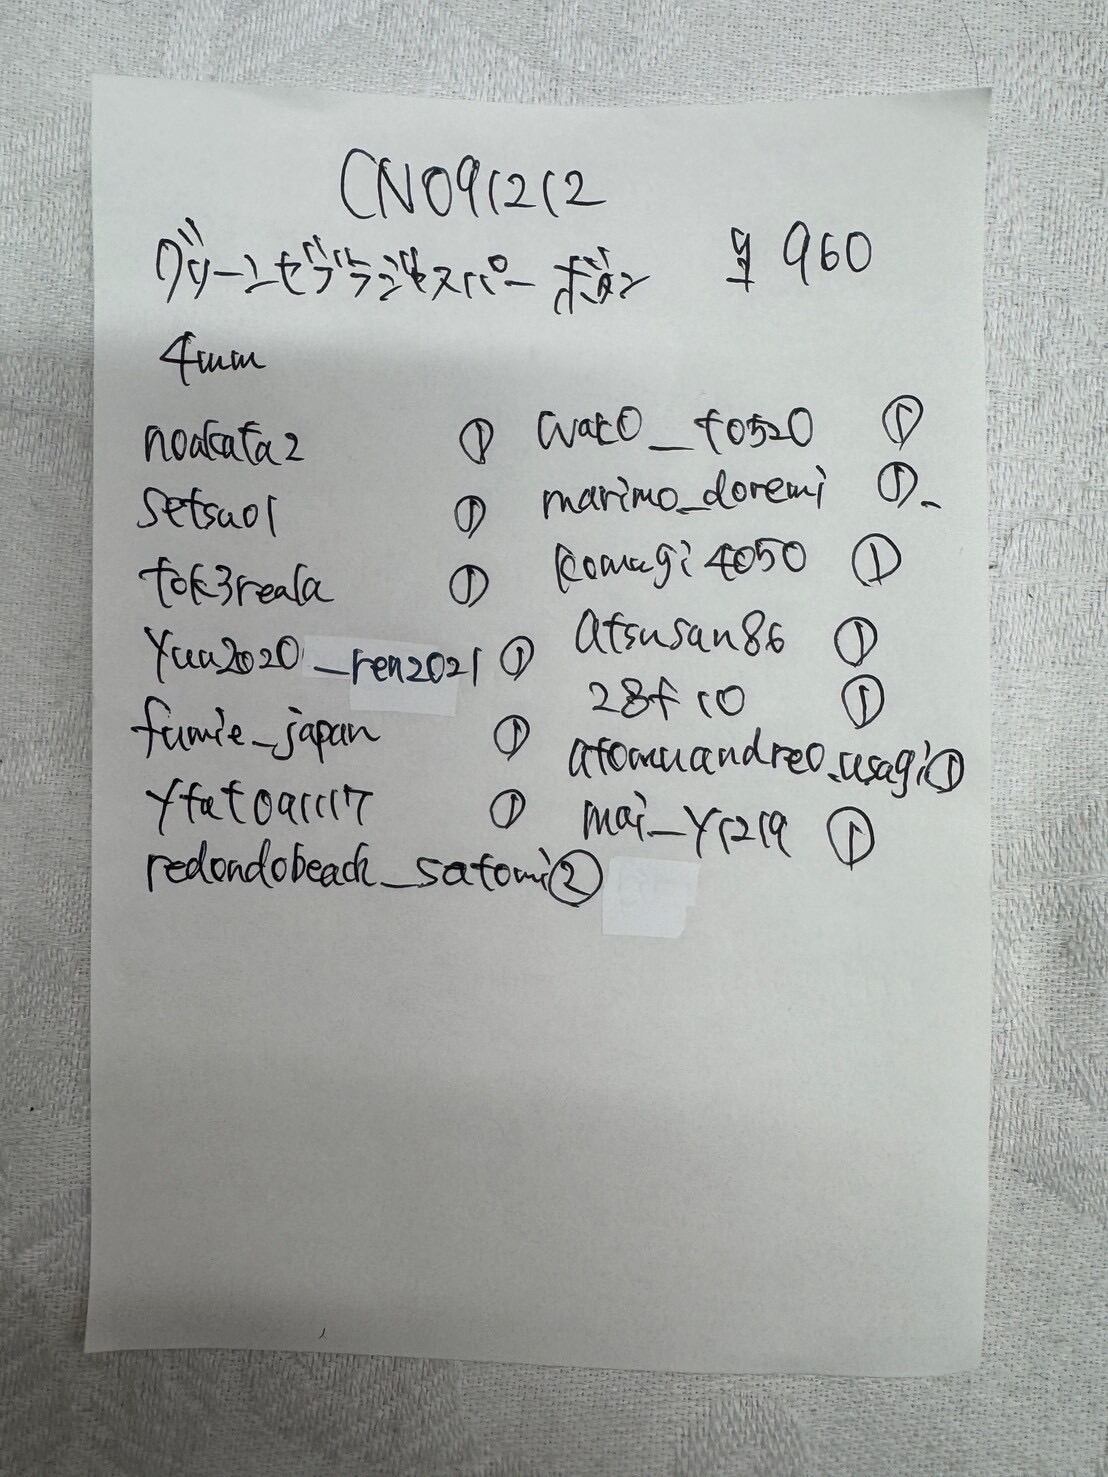 CN091212
グリーンゼブラジャスパー ボタン ¥960
4mm
noakata2 ①
setsu01 ①
tok3reala ①
yuu2020_ren2021 ①
fumie_japan ①
yfatoa1117 ①
redondobeach_satomi②
wako_t0520 ①
marimo_doremi ①
komugi4050 ①
atsusan86 ①
28f10 ①
atomuandreo.usagi①
mai_y1219 ①